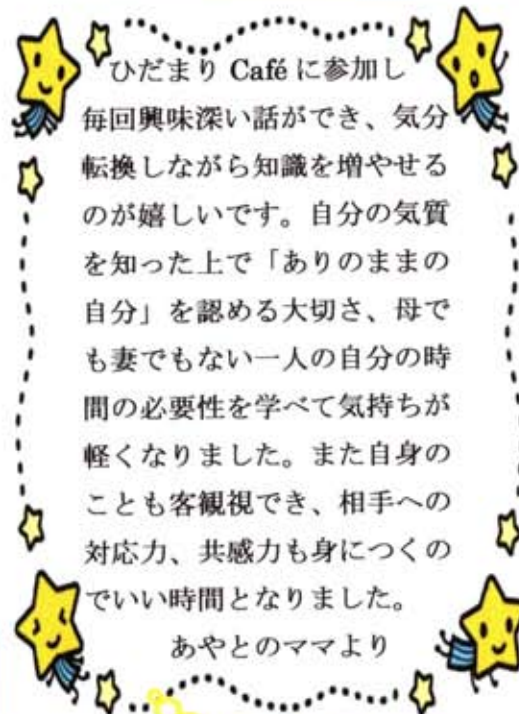 ひだまり Café に参加し
毎回興味深い話ができ、気分
転換しながら知識を増やせる
のが嬉しいです。自分の気質
を知った上で「ありのままの
自分」を認める大切さ、母で
も妻でもない一人の自分の時
間の必要性を学べて気持ちが
軽くなりました。また自身の
ことも客観視でき、相手への
対応力、共感力も身につくの
でいい時間となりました。
あやとのママより